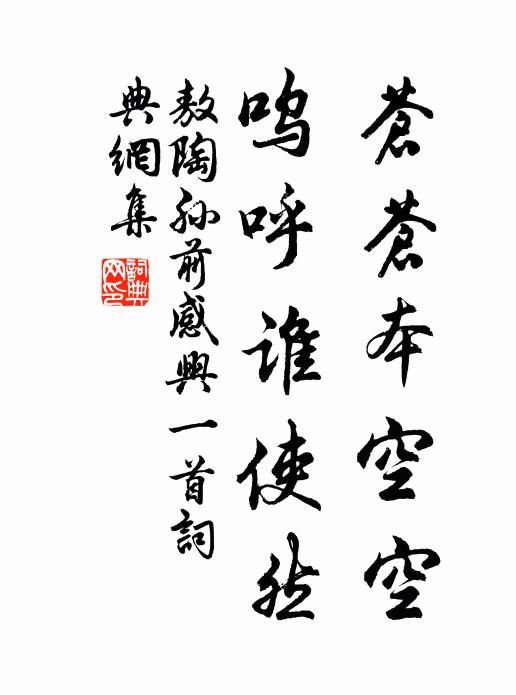 蒼蒼本空空
嗚呼誰使然
敖陶孙前感興一首詞
典網集
詞典网印